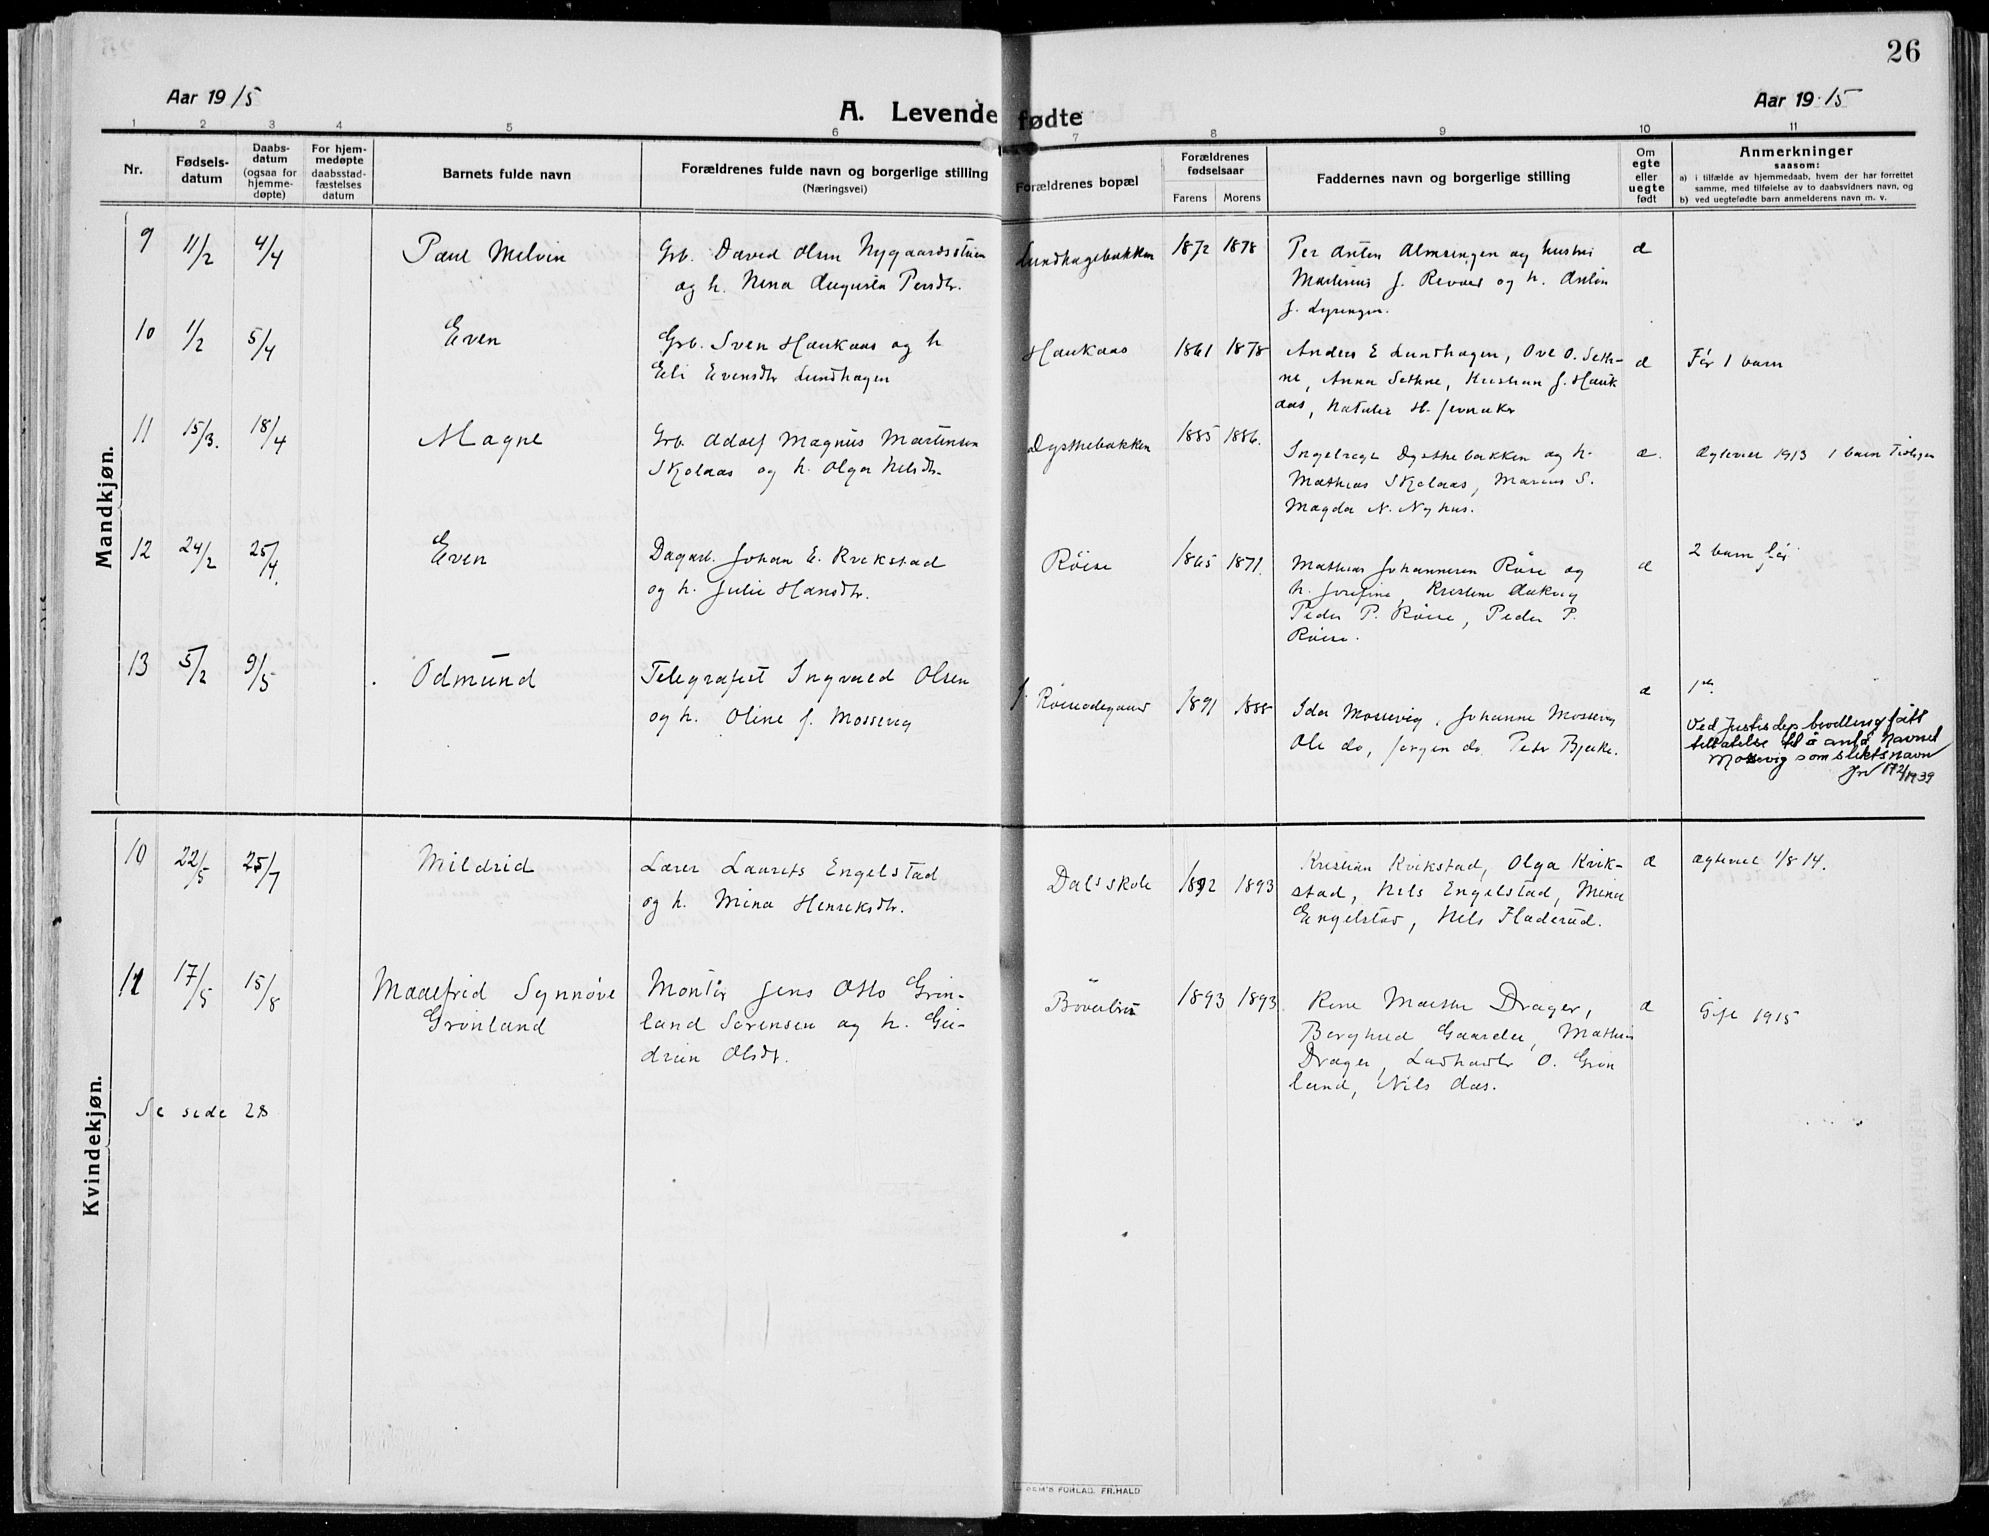 26
Aar 1915
A. Levende fødte
Aar 1915
1 2 3 4 5 6 7 8 9 10 11
Nr.
Fødsels-
datum
Daabs-
datum
(ogsaa for
hjemme-
døpte)
For hjem-
medøpte
daabsstad-
fæstelses
datum
Barnets fulde navn
Forældrenes fulde navn og borgerlige stilling
(Næringsvei)
Forældrenes bopæl
Forældrenes
fødselsaar
Farens Morens
Faddernes navn og borgerlige stilling
Om
egte
eller
uegte
født
Anmerkninger
saasom:
a) i tilfælde av hjemmedaab, hvem der har forrettet
samme, med tilføielse av to daabsvidners navn, og
b) ved uegtefødte barn anmelderens navn m. v.
Mandkjøn.
9 11/2 4/4 Paul Melvin
Grb. David Olsen Nygaardsstuen
og h. Nina Augusta Persdtr.
Lundhagebakken 1872 1878
Per Anton Almsengen og hustru
Martinius J. Revaas og h. Anton
J. Lyrengen.
æ
10 1/2 5/4 Even
Grb. Sven Haukaas og h
Eli Evensdtr Lundhagen
Haukaas 1861 1878
Anders E Lundhagen, Ove O. Seth-
ne, Anna Sethne, Kristian J. Hauk
aas, Natalie H. Jevnaker
æ Før 1 barn
11 15/3. 18/4 Magne
Grb. Adolf Magnus Martinsen
Skjelaas og h. Olga Nilsdtr.
Dysthebakken 1885 1886.
Ingebregt Dysthebakken og h.
Mathias Skjelaas, Marius S.
Magda N. Nyhus.
æ. Ægteviet 1913 1 barn Tidligere
12 24/2 25/4. Even
Dagarb. Johan E. Kvikstad
og h. Julie Hansdtr.
Røise 1865 1871.
Mathias Johannesen Røise og
h. Josefine, Kristine Aakvig
Peder P. Røise, Peder P.
Røise.
æ 2 barn før
13 5/2 9/5 Odmund
Telegrafist Ingvald Olsen
og h. Oline f. Mossevig
Røiseodegaard 1891 1888
Ida Mossevig, Johanne Mossevig
Ole do, Jørgen do. Peter Bjerke.
æ 1ste.
Ved Justisdep. bevilling fått
tillatelse til å anta navnet
Mossevig som slektsnavn
Jnr 172/1939
Kvindekjøn.
10 22/5 25/7 Mildrid
Lærer Laurits Engelstad
og h. Mina Henriksdtr.
Dals skole 1892 1893
Kristian Kvikstad, Olga Kvik-
stad, Nils Engelstad, Mina
Engelstad, Nils Fladerud.
æ Ægteviet 1/8 14.
11 17/5 15/8 Maalfrid Synnøve
Grønland
Montør Jens Otto Grøn-
land Sørensen og h. Gu-
drun Olsdtr.
Bøverbru 1893 1893.
Rine Marthe Drager,
Borghild Gaarder, Mathias
Drager, Ladhandl. O. Grøn
land, Nils das.
æ Gift 1915
Se side 28
FORLAG. FR.HALD